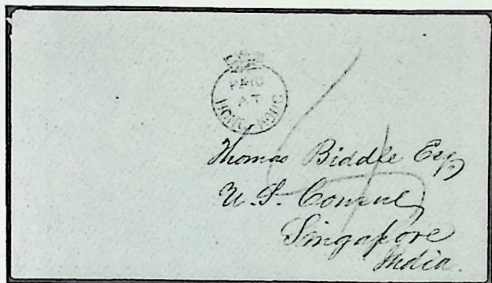 PAID
AT
HONG KONG
Thomas Biddle Esq
U.S. Consul
Singapore
India.